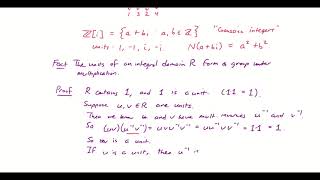 1 2 3 4
ℤ[i] = {a + bi : a, b ∈ ℤ} "Gaussian integers"
units 1, -1, i, -i N(a+bi) = a² + b²
Fact The units of an integral domain R form a group under
multiplication.
Proof R contains 1, and 1 is a unit. (1·1 = 1)
Suppose u, v ∈ R are units.
Then we know u and v have mult. inverses u⁻¹ and v⁻¹.
So (uv)(u⁻¹v⁻¹) = uvu⁻¹v⁻¹ = uu⁻¹vv⁻¹ = 1·1 = 1.
So uv is a unit.
If u is a unit, then u⁻¹ is